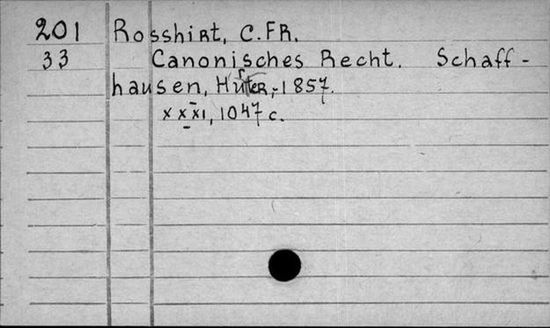 201 Rosshirt, C.FR.
33 Canonisches Recht. Schaff-
hausen, 1857.
XXXI, 1047 c.